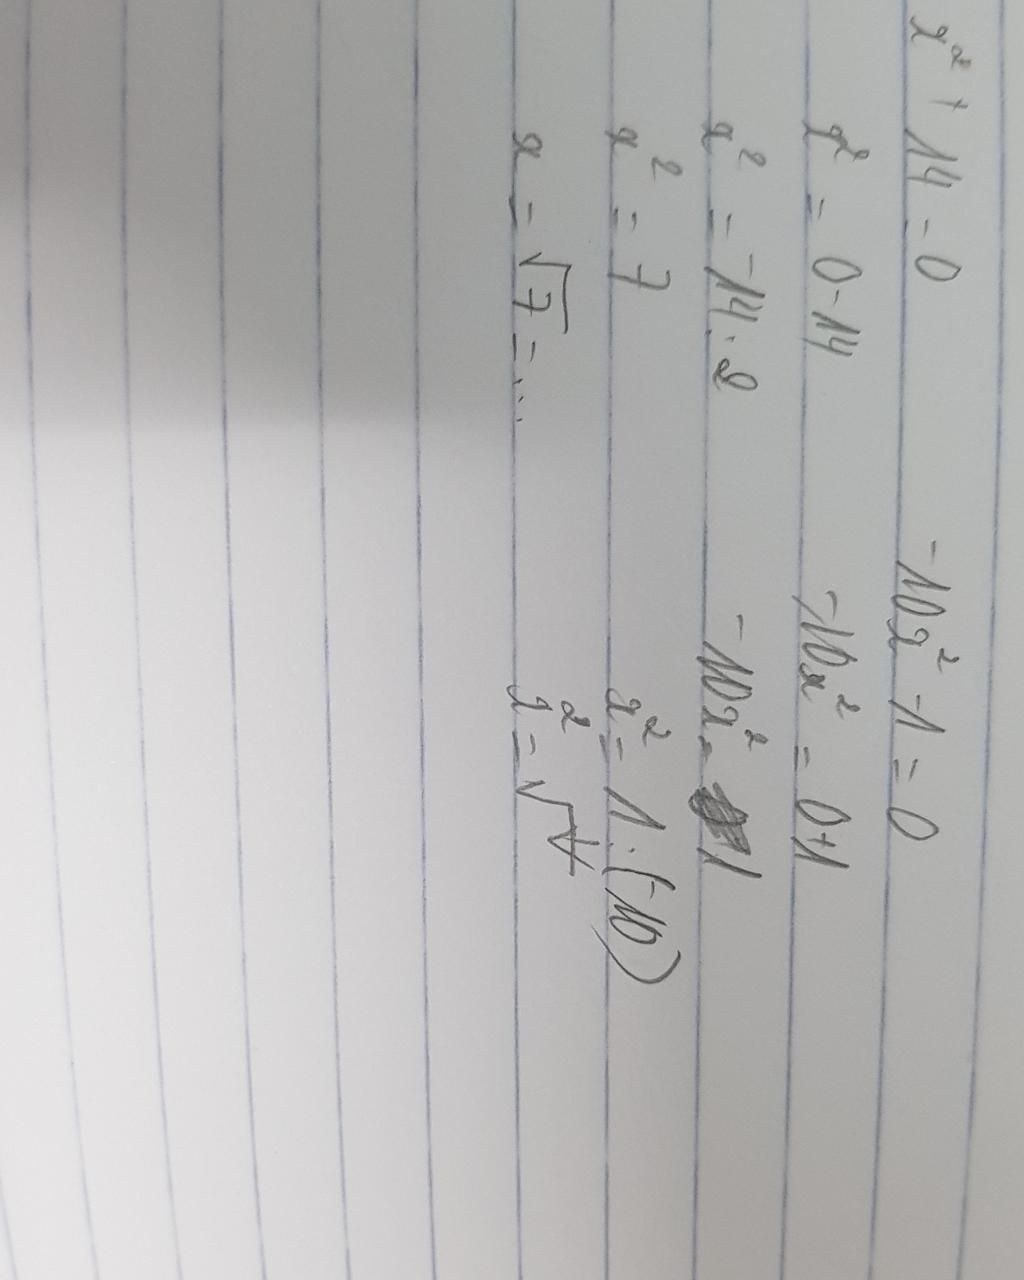 x² + 14 = 0
x² = 0 - 14
x² = -14 : 2
x² = 7
x = √7 = ...
-10x² - 1 = 0
-10x² = 0+1
-10x² = 1
x² = 1 : (-10)
x² = √